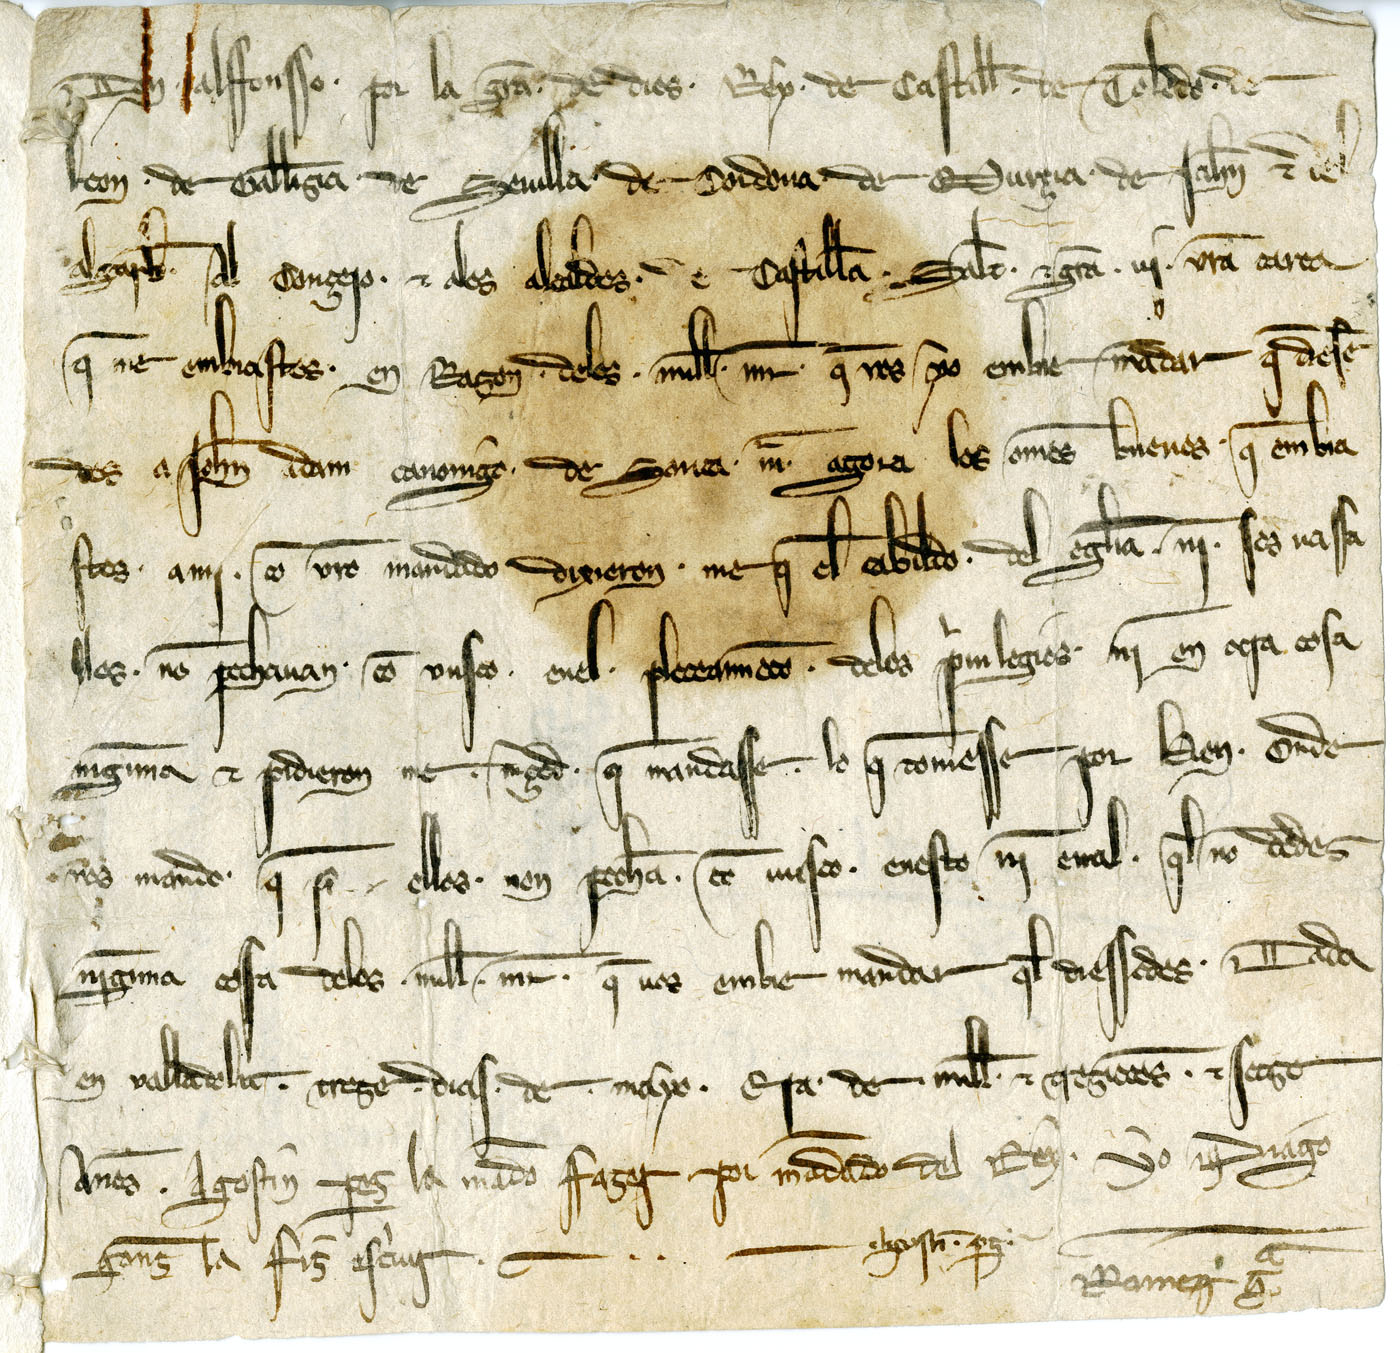 Don alffonsso por la gra de dios Rey de Castiella de Toledo de
leon de Gallizia de Seuilla de Cordoua de Murçia de Jahn τ del
algarbe Al Conçejo τ alos alcaldes de Castilla Salt τ gra ui ura carta
q me embiastes en Razon delos mill mr q uos yo embie mandar q diesse
des a Johan adam canonigo de Soria agora los omes buenos q embia
stes ami co uro mandado dixieron me q el cabildo del eglia ni sos uassa
llos no pechauan co uusco enel deles priuilegios ni en otra cosa
ninguna τ pidieron me merçed q mandasse lo q touiesse por bien Onde
uos mando q si ellos non pechan co uusco enesto ni enal ql no dedes
ninguna cossa delos mill mr q uos embie mandar ql diessedes Dada
en valladolit treze dias de mayo Era de mill τ trezietos τ
Anos Agostin perez la mado ffazer por madado del Rey Yo
la fiz escriuir